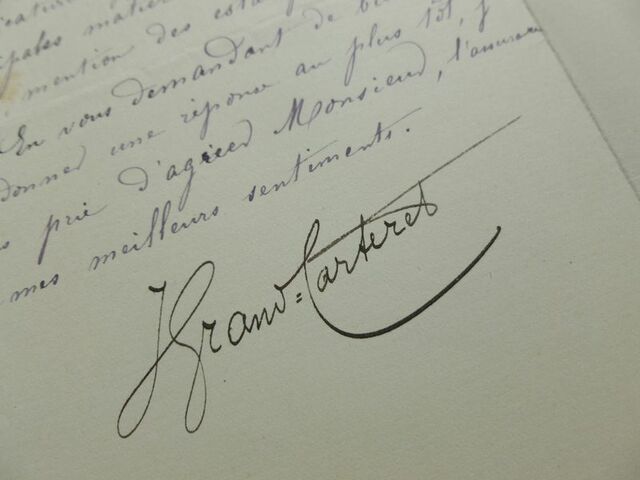 pales matiè
mention des esta
En vous demandant de
donner une réponse au plus tôt, j
prie d'agréer Monsieur, l'assuran
mes meilleurs sentiments.
J Grand-Carteret